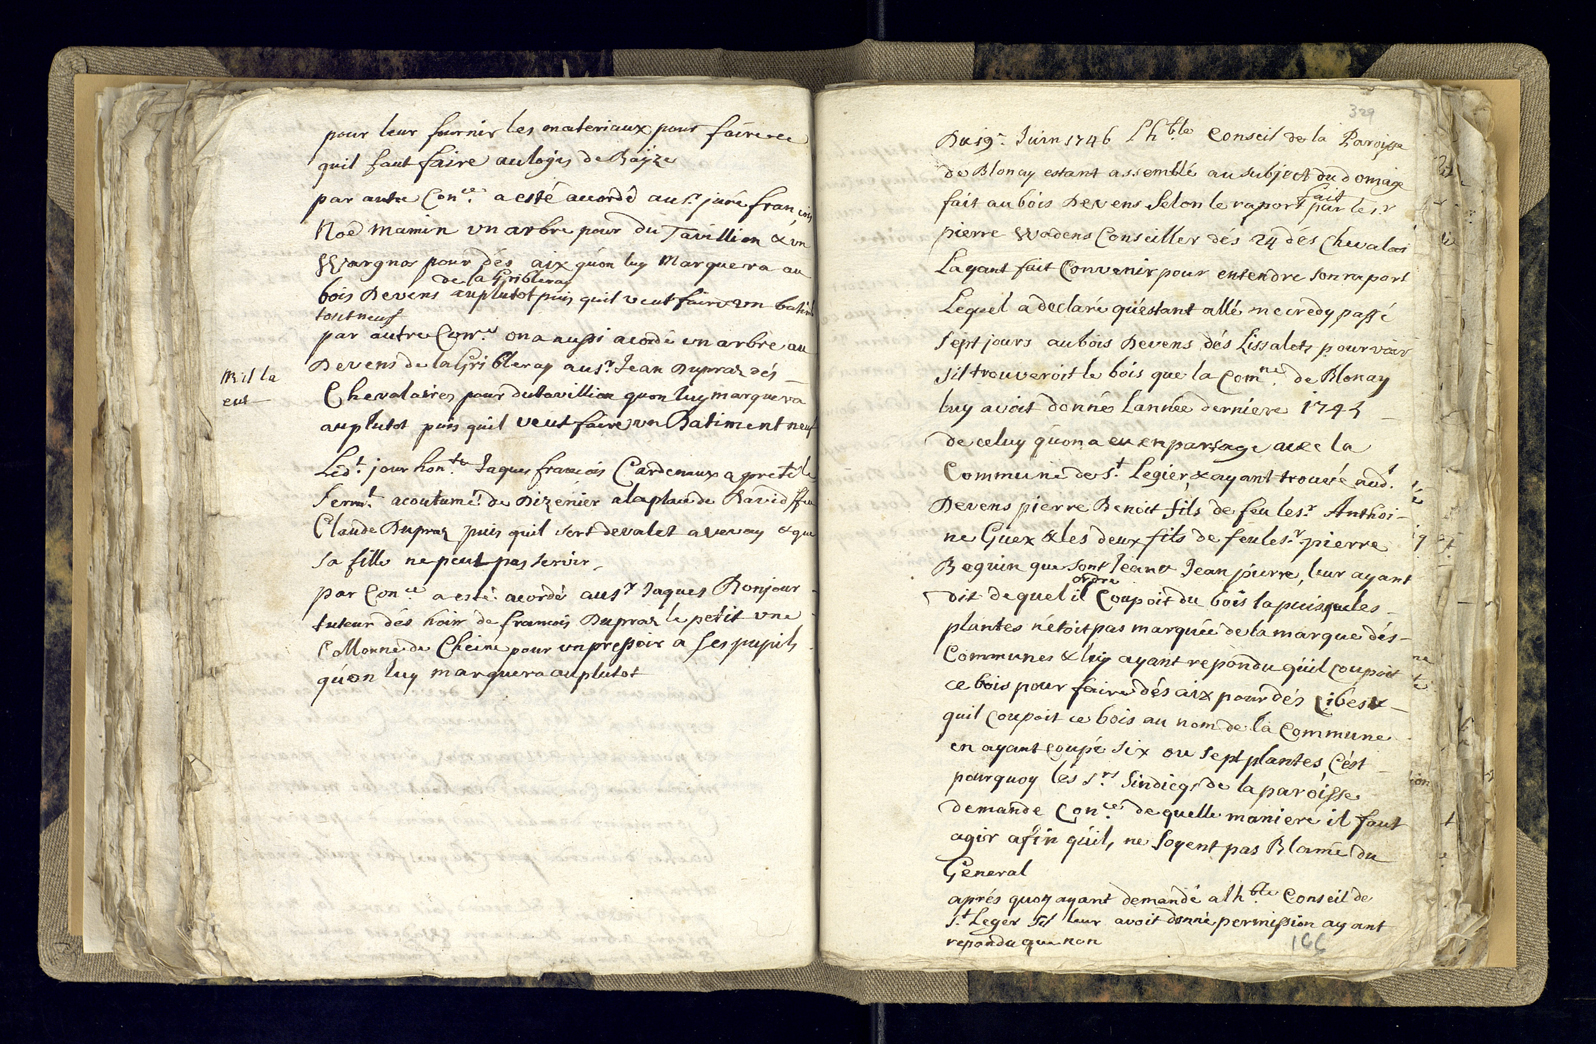 pour leur fournir les materiaux pour faire ce
quil faut faire au logis de Bayze
par autre Con.ce a esté acordé au Sr juré françois
Noé mamin un arbre pour du Tavillion & un
pour dés aix qu'on luy Marquera au
de la Gribleray
bois Devens au plutot puis quil veut faire un batim
tout neuf
par autre Con.ce on a aussi acordé un arbre au
Devens de la Gribleray au sr. Jean Dupraz dés
Chevalaires pour du tavillion quon luy marquera
au plutot puis quil veut faire un Batiment neuf
Mil la
eut
Led.t jour hon.te Jaques francois Cardenaux a preté le
Serm.t acoutumé de Dizenier a la place de David ffeu
Claude Dupraz puis quil sert de valet a vevay & que
sa fille ne peut pas servir.
par Con.ce a esté acordé au sr Jaques Bonjour
tuteur dés hoirs de francois Dupraz le petit une
Collonne de Cheine pour un pressoir a ses pupils
qu'on luy marquera au plutot
329
Du 19e Juin 1746 l'h.ble Conseil de la Paroisse
de Blonay estant assemblé au subject du domage
fait au bois Devens Selon le raport fait par le s.r
pierre Wadens Conseiller dés 24 dés Chevalai
Layant fait Convenir pour entendre son raport
Lequel a declaré qu'estant allé mecredy passé
Sept jours au bois Devens dés Lissalets pour voir
sil trouveroit le bois que la Com.ne de Blonay
luy avoit donnés Lannée derniere 1745
de celuy quon a eu en partage avec la
Commune de S.t Legier, & ayant trouvé aud.t
Devens pierre Benoit fils de feu le s.r Anthoi-
ne Guex & les deux fils de feu le s.r pierre
Beguin que sont Jean & Jean pierre, leur ayant
ordre
dit de quel il Coupoit du bois la puis que les
plantes n'étoit pas marquée de la marque dés
Communes & luy ayant repondu quil coupoit
ce bois pour faire dés aix pour dés &
quil coupoit ce bois au nom de la Commune
en ayant coupé six ou sept plantes C'est
pourquoy lés s.rs Sindicqs de la paroisse
demande Con.ce de quelle maniere il faut
agir afin qu'il, ne soyent pas Blamé du
General
aprés quoy ayant demandé a lh.ble Conseil de
S.t Leger sil leur avoit donné permission ayant
repondu que non
166